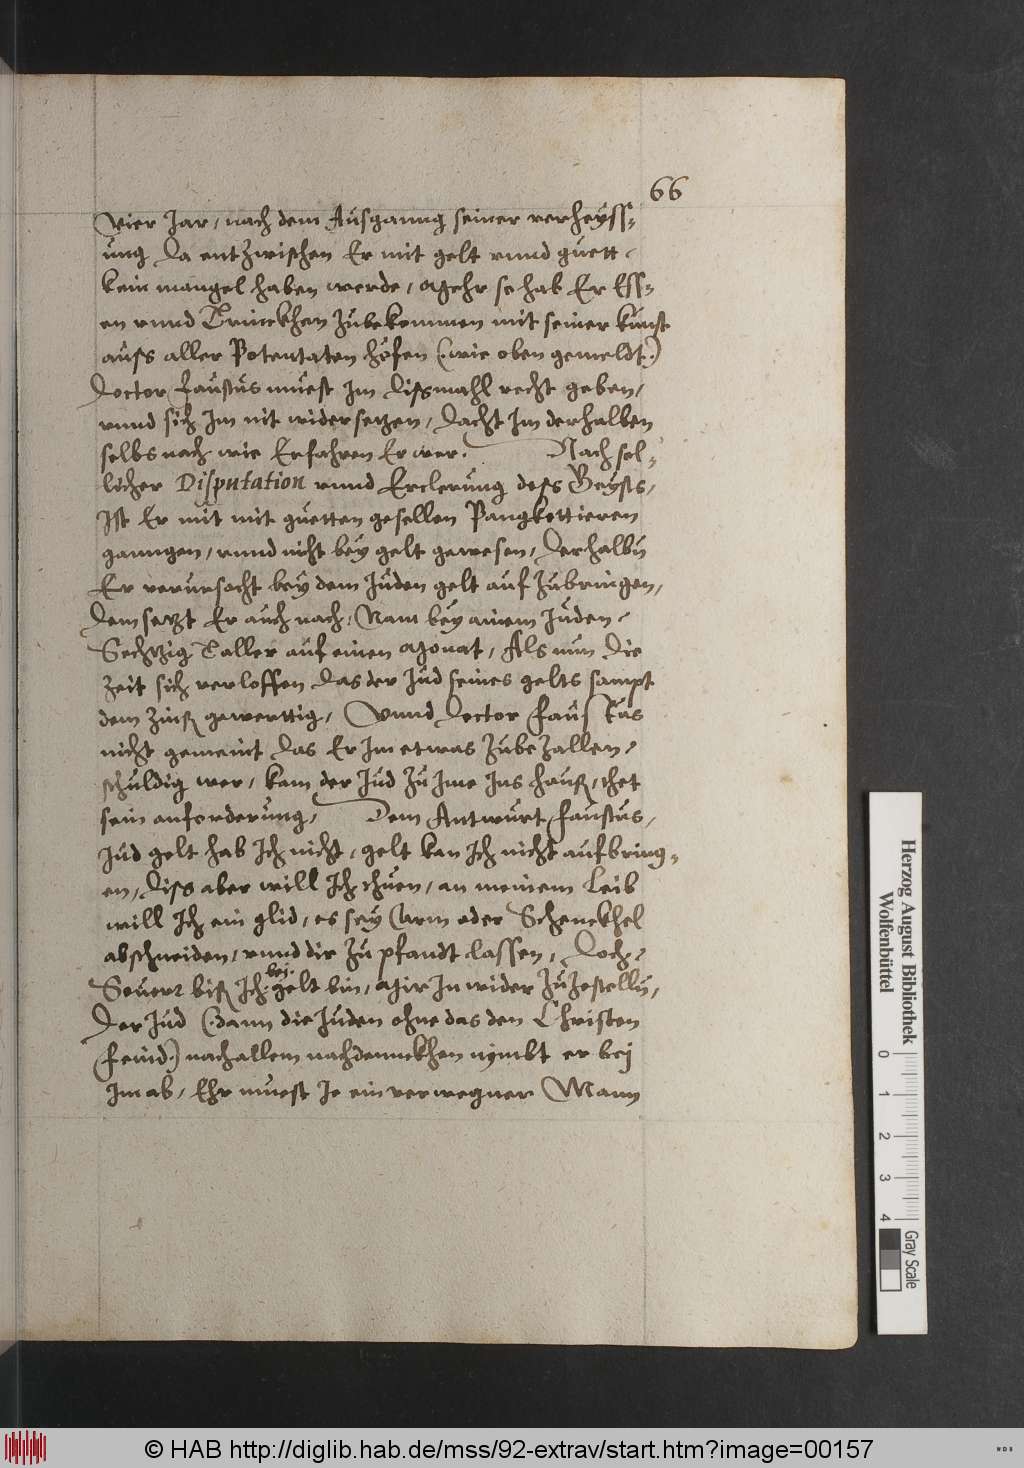 66
vier Jar, nach dem Ausganng seiner verheyss-
ung Da entzwischen Er mit gelt vnnd guett,
kein mangel haben werde, Mehr so hab Er Ess-
en vnnd Trinckhen zubekommen mit seiner kunst
aufs aller Potentaten höfen (: wie oben gemeldt :)
Doctor faustus muest Im Dissmahl recht geben,
vnnd sich Im nit widersetzen, Dacht Im derhalben
selbs nach wie Erfahren Er wer. Nach sol-
licher Disputation vnnd Erclerung defs Geysts,
Ist Er mit mit guetten gesellen Pangkettieren
ganngen, vnnd nicht bey gelt gewesen, Derhalbn
Er verursacht bey dem Juden gelt auf zubringen,
Dem setzt Er auch nach, Nam bey ainem Juden,
Sechtzig Taller auf einen Monat, Als nun die
Zeit sich verloffen Das der Jud seines gelts sampt
dem zinß gewerttig, Vnnd Doctor Faustus
nicht gemeint Das Er Im etwas zubezallen,
schuldig wer, kam der Jud zu Ime Ins Hauß, thet
sein anforderung, Dem Antwurt Faustus,
Jud gelt hab Ich nicht, gelt kan Ich nicht aufbring-
en, Diss aber will Ich thuen, an meinem Leib
will Ich ein glid, es sey Arm oder Schenckhel
abschneiden, vnnd dir zu pfandt lassen, Doch,
Souerr biß Ich bej gelt bin, Mir In wider zuzestelln,
Der Jud (: dann die Juden ohne das den Christen
feind :) nach allem nachdennckhen nymbt er bej
Im ab, Ehr muest Je ein verwegner Mann
Herzog August Bibliothek
Wolfenbüttel
0 1 2 3 4
Gray Scale
© HAB http://diglib.hab.de/mss/92-extrav/start.htm?image=00157
WDB